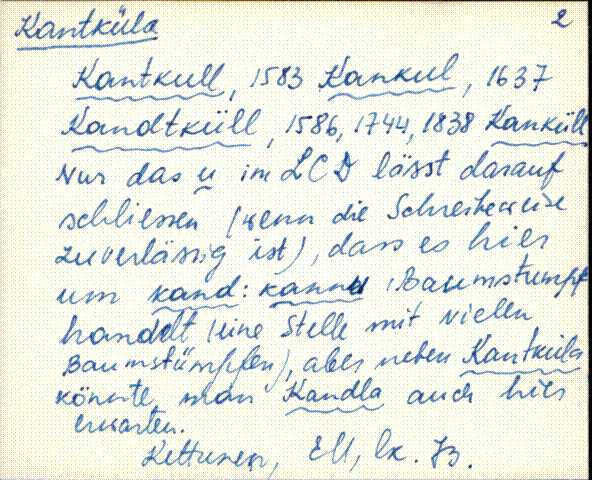 Kantküla 2
Kantkull, 1583 Kankul, 1637
Kandtküll, 1586, 1744, 1838 Kanküll
Nur das u im LCD lässt darauf
schliessen (wenn die Schreibweise
zuverlässig ist), dass es hier
um kand: kannu (Baumstumpf
handelt (eine Stelle mit viellen
Baumstümpfen), aber neben Kantküla
könnte man Kandla auch hier
erwarten.
Kettunen, EM, lk. 73.